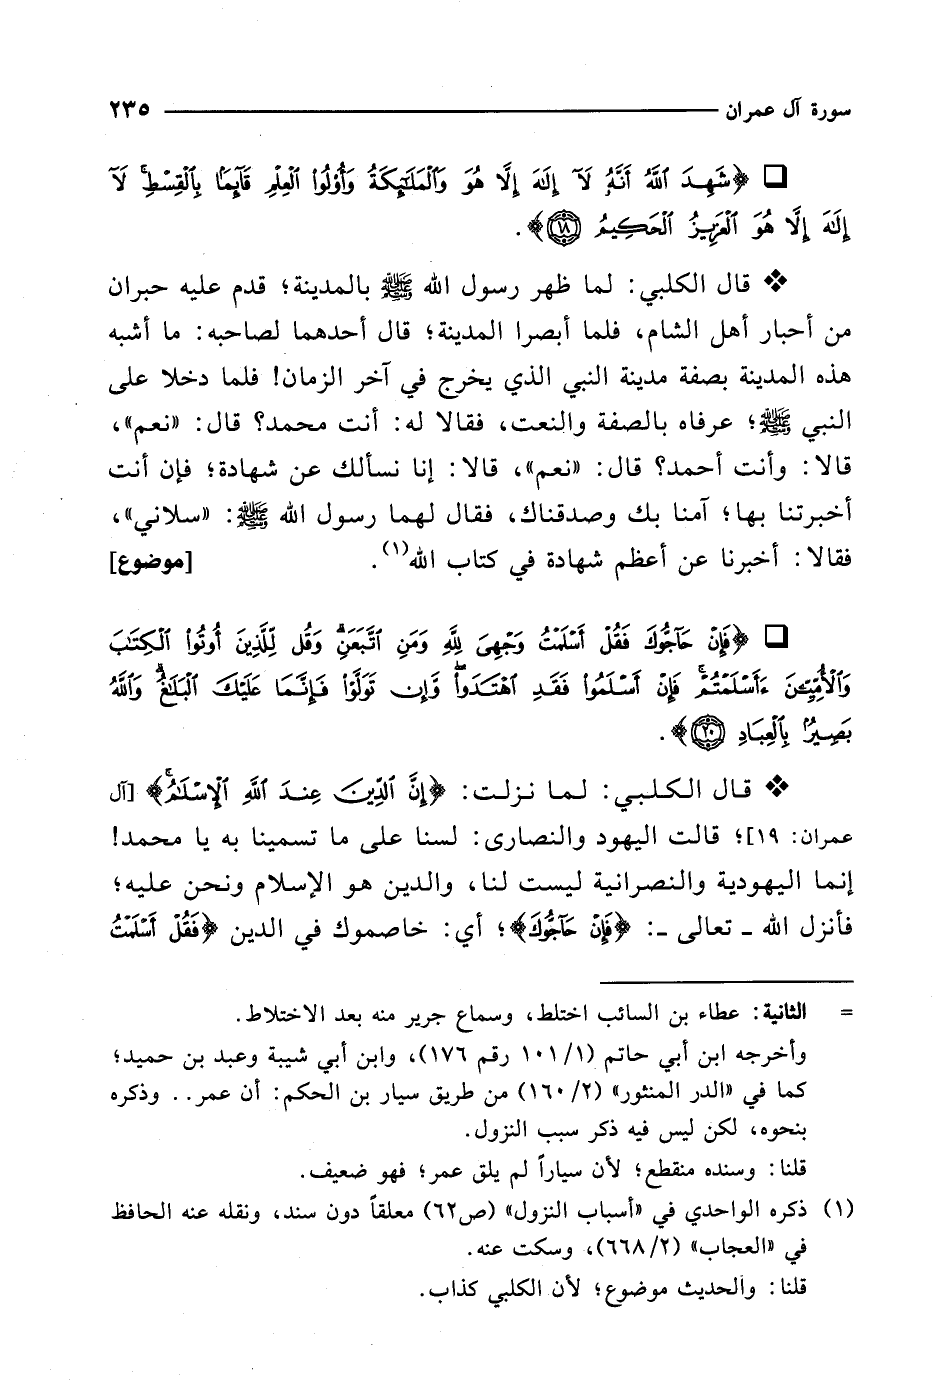 سورة آل عمران ٢٣٥
❑ ﴿شَهِدَ اللَّهُ أَنَّهُ لَا إِلَهَ إِلَّا هُوَ وَالْمَلَائِكَةُ وَأُوْلُوا الْعِلْمِ قَائِمًا بِالْقِسْطِ لَا
إِلَهَ إِلَّا هُوَ الْعَزِيزُ الْحَكِيمُ ١٨﴾.
❖ قال الكلبي: لما ظهر رسول الله ﷺ بالمدينة؛ قدم عليه حبران
من أحبار أهل الشام، فلما أبصرا المدينة؛ قال أحدهما لصاحبه: ما أشبه
هذه المدينة بصفة مدينة النبي الذي يخرج في آخر الزمان! فلما دخلا على
النبي ﷺ؛ عرفاه بالصفة والنعت، فقالا له: أنت محمد؟ قال: «نعم»،
قالا: وأنت أحمد؟ قال: «نعم»، قالا: إنا نسألك عن شهادة؛ فإن أنت
أخبرتنا بها؛ آمنا بك وصدقناك، فقال لهما رسول الله ﷺ: «سلاني»،
فقالا: أخبرنا عن أعظم شهادة في كتاب الله(١). [موضوع]
❑ ﴿فَإِنْ حَاجُّوكَ فَقُلْ أَسْلَمْتُ وَجْهِيَ لِلَّهِ وَمَنِ اتَّبَعَنِ وَقُل لِّلَّذِينَ أُوتُوا الْكِتَابَ
وَالْأُمِّيِّينَ ءَأَسْلَمْتُمْ فَإِنْ أَسْلَمُوا فَقَدِ اهْتَدَوا وَّإِن تَوَلَّوْا فَإِنَّمَا عَلَيْكَ الْبَلَاغُ وَاللَّهُ
بَصِيرٌ بِالْعِبَادِ ٢٠﴾.
❖ قال الكلبي: لما نزلت: ﴿إِنَّ الدِّينَ عِندَ اللَّهِ الْإِسْلَامُ﴾ [آل
عمران: ١٩]؛ قالت اليهود والنصارى: لسنا على ما تسمينا به يا محمد!
إنما اليهودية والنصرانية ليست لنا، والدين هو الإسلام ونحن عليه؛
فأنزل الله ـ تعالى ـ: ﴿فَإِنْ حَاجُّوكَ﴾؛ أي: خاصموك في الدين ﴿فَقُلْ أَسْلَمْتُ
= الثانية: عطاء بن السائب اختلط، وسماع جرير منه بعد الاختلاط.
وأخرجه ابن أبي حاتم (١/ ١٠١ رقم ١٧٦)، وابن أبي شيبة وعبد بن حميد؛
كما في «الدر المنثور» (٢/ ١٦٠) من طريق سيار بن الحكم: أن عمر.. وذكره
بنحوه، لكن ليس فيه ذكر سبب النزول.
قلنا: وسنده منقطع؛ لأن سياراً لم يلق عمر؛ فهو ضعيف.
(١) ذكره الواحدي في «أسباب النزول» (ص٦٢) معلقاً دون سند، ونقله عنه الحافظ
في «العجاب» (٢/ ٦٦٨)، وسكت عنه.
قلنا: والحديث موضوع؛ لأن الكلبي كذاب.